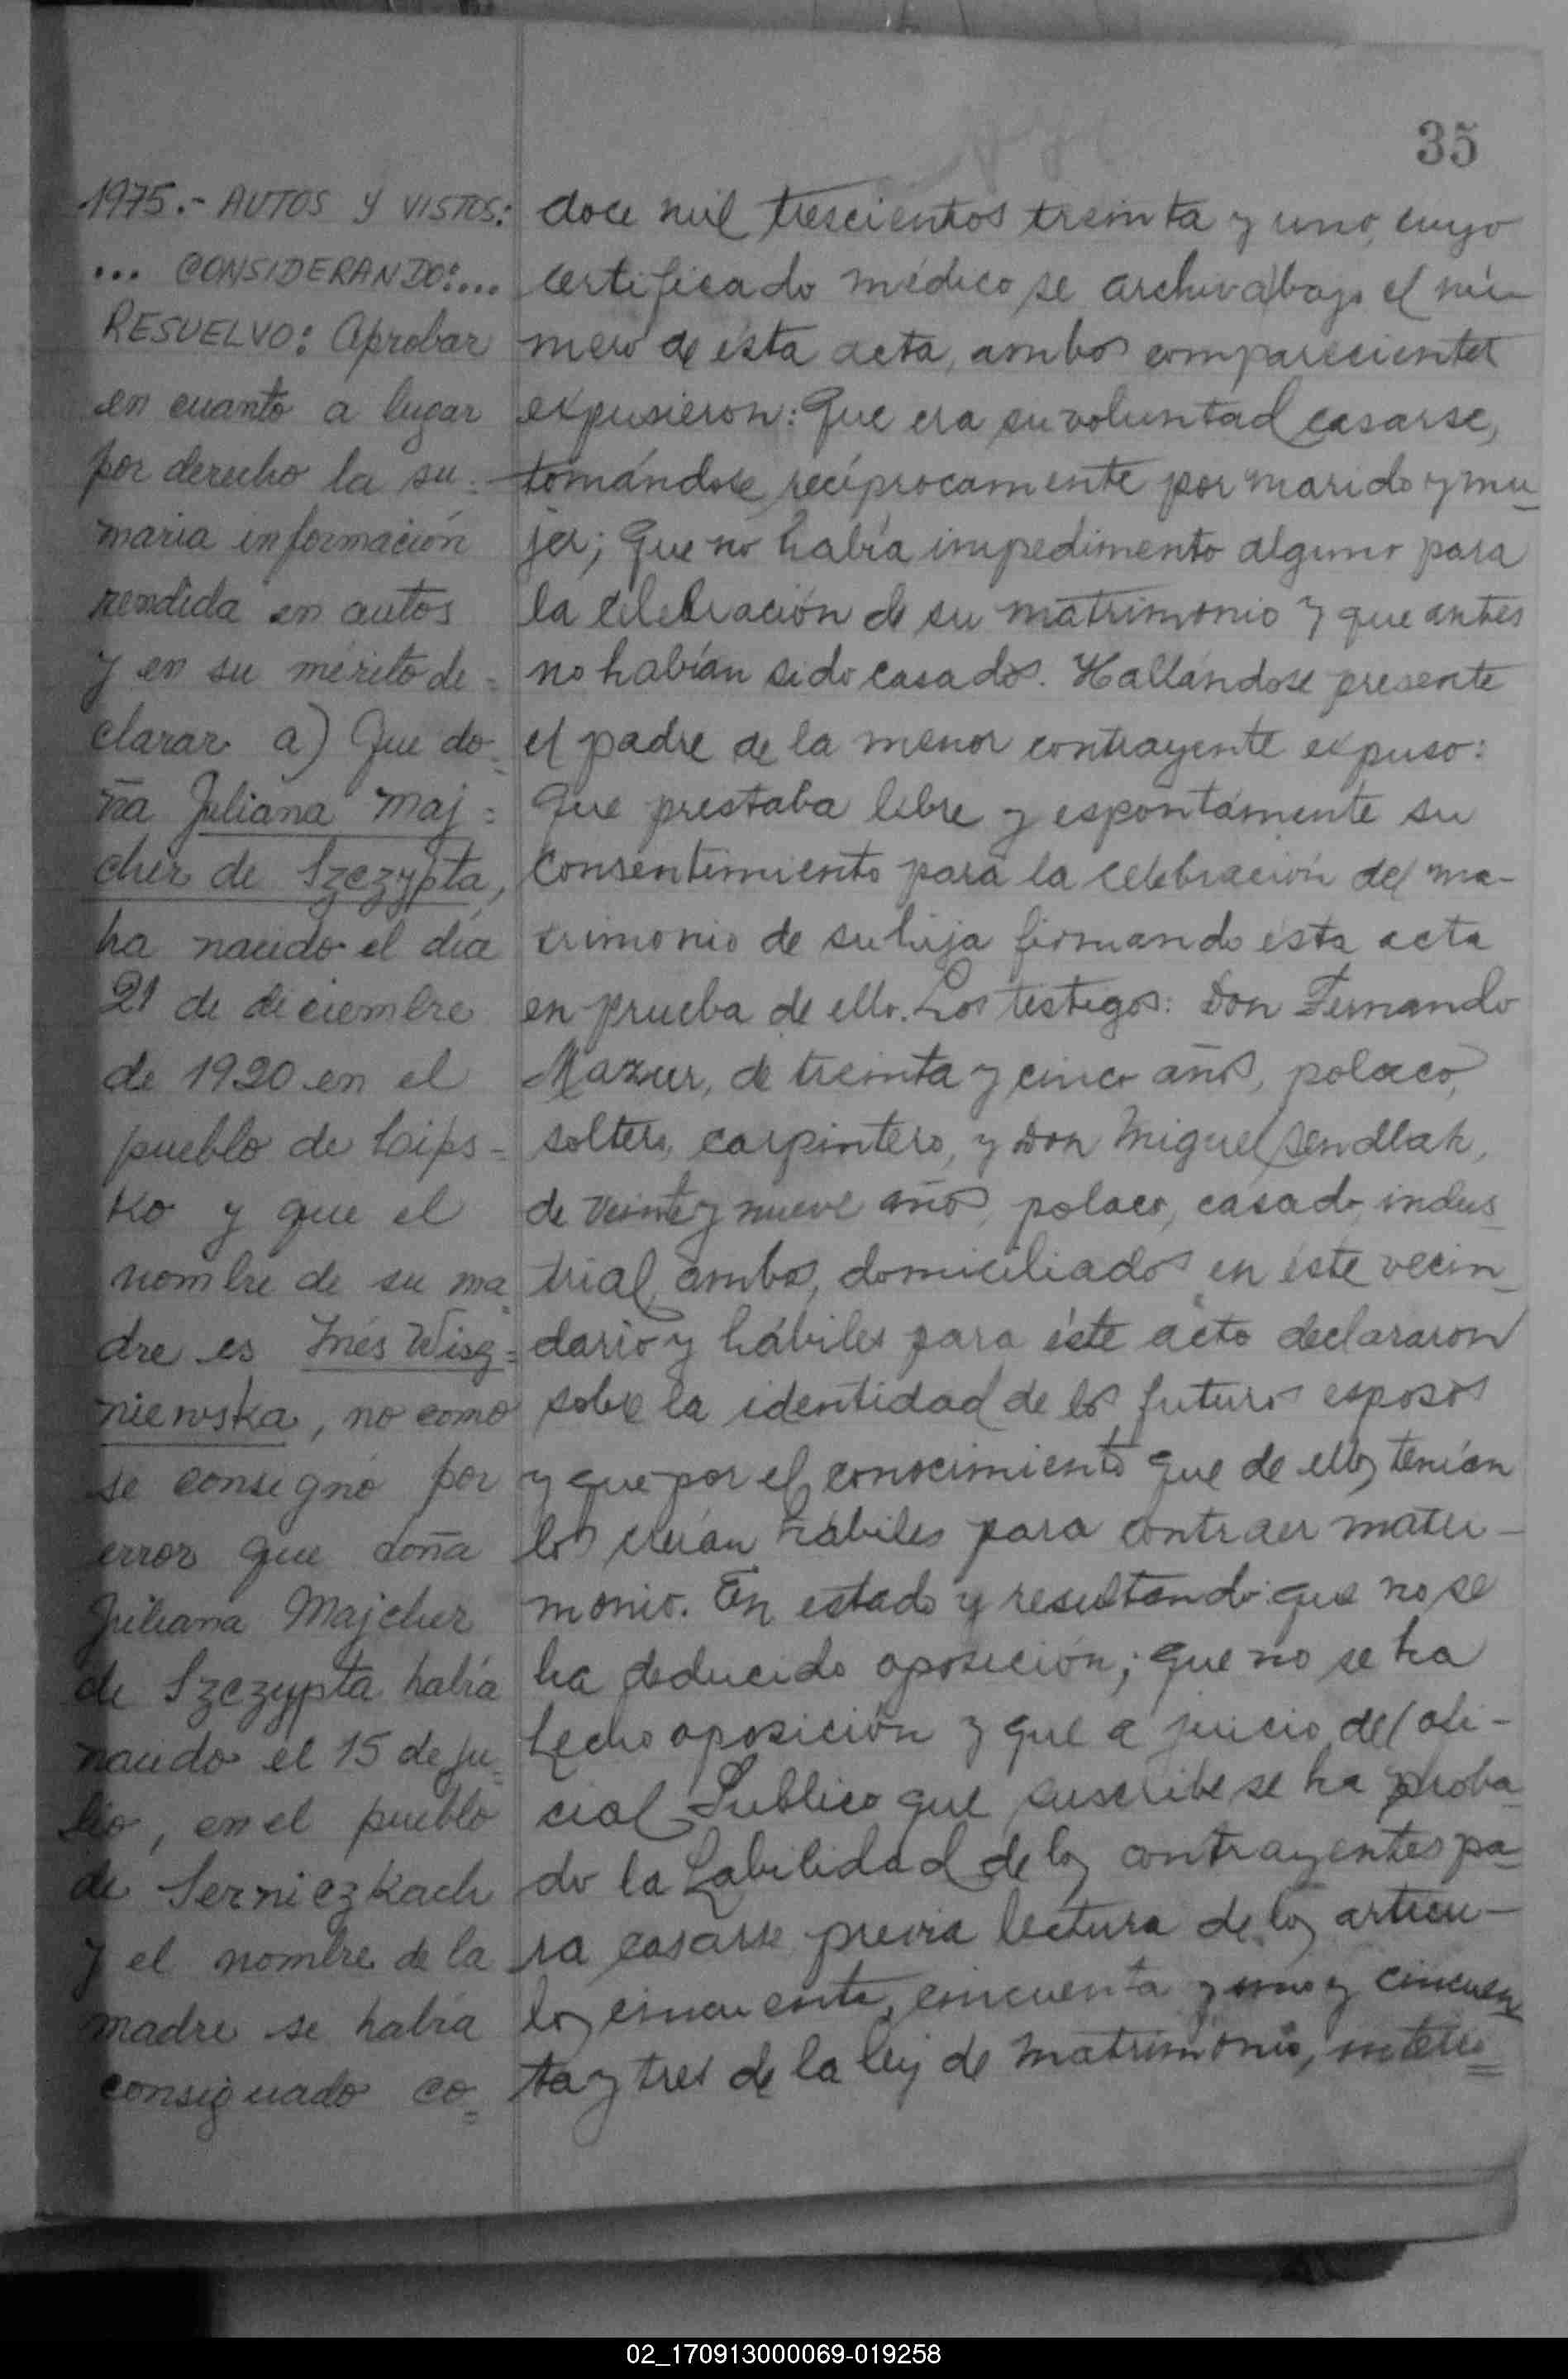 35
1975.- AUTOS Y VISTOS:
... CONSIDERANDO:...
RESUELVO: Aprobar
en cuanto a lugar
por derecho la su=
maria información
rendida en autos
y en su mérito de=
clarar a) Que do=
ña Juliana Maj=
cher de Szczypta,
ha nacido el día
21 de diciembre
de 1920 en el
pueblo de Lips=
ko y que el
nombre de su ma=
dre es Inés Wisg=
niewska, no como
se consignó por
error que doña
Juliana Majcher
de Szczypta había
nacido el 15 de ju=
lio, en el pueblo
de Serniczkach
y el nombre de la
madre se había
consignado co=
doce mil trescientos treinta y uno, cuyo
certificado médico se archiva bajo el nú-
mero de ésta acta, ambos comparecientes
expusieron: Que era su voluntad casarse,
tomándose recíprocamente por marido y mu-
jer; Que no había impedimento alguno para
la celebración de su matrimonio y que antes
no habían sido casados. Hallándose presente
el padre de la menor contrayente expuso:
Que prestaba libre y espontámente su
consentimiento para la celebración del ma-
trimonio de su hija firmando ésta acta
en prueba de ello. Los testigos: Don Fernando
Mazur, de treinta y cinco años, polaco,
soltero, carpintero, y Don Miguel Sendlak,
de veinte y nueve años, polaco, casado, indus-
trial, ambos, domiciliados en éste vecin-
dario y hábiles para éste acto declararon
sobre la identidad de los futuros esposos
y que por el conocimiento que de ellos tenían
los creían hábiles para contraer matri-
monio. En estado y resultando: que no se
ha deducido oposición; que no se ha
hecho oposición y que a juicio del ofi-
cial Publico que suscribe se ha proba-
do la habilidad de los contrayentes pa-
ra casarse previa lectura de los artícu-
los cincuenta, cincuenta y uno y cincuen-
ta y tres de la ley de Matrimonio,
02_170913000069-019258